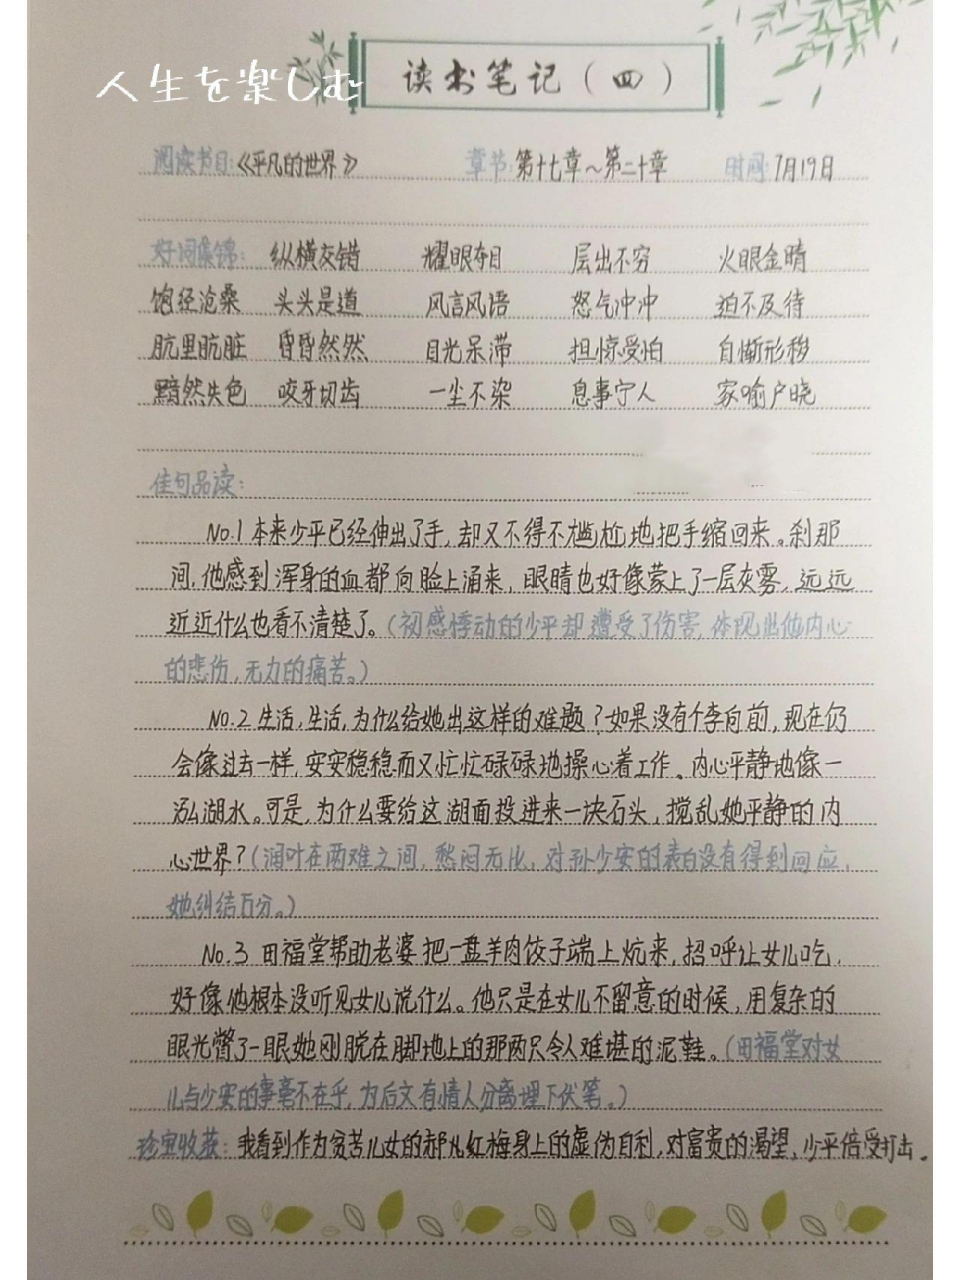 人生を楽しむ
读书笔记（四）
阅读书目：《平凡的世界》 章节：第十七章～第二十章 时间：7月19日
好词集锦： 纵横交错 耀眼夺目 层出不穷 火眼金睛
饱经沧桑 头头是道 风言风语 怒气冲冲 迫不及待
肮里肮脏 昏昏然然 目光呆滞 担惊受怕 自惭形秽
黯然失色 咬牙切齿 一尘不染 息事宁人 家喻户晓
佳句品读：
No.1 本来少平已经伸出了手，却又不得不尴尬地把手缩回来。刹那
间，他感到浑身的血都向脸上涌来，眼睛也好像蒙上了一层灰雾，远远
近近什么也看不清楚了。（初感悸动的少平却遭受了伤害，体现出他内心
的悲伤，无力的痛苦。）
No.2 生活，生活，为什么给她出这样的难题？如果没有个李向前，现在仍
会像过去一样，安安稳稳而又忙忙碌碌地操心着工作、内心平静地像一
泓湖水。可是，为什么要给这湖面投进来一块石头，搅乱她平静的内
心世界？（润叶在两难之间，愁闷无比，对孙少安的表白没有得到回应，
她纠结万分。）
No.3 田福堂帮助老婆把一盘羊肉饺子端上炕来，招呼让女儿吃，
好像他根本没听见女儿说什么。他只是在女儿不留意的时候，用复杂的
眼光瞥了一眼她刚脱在脚地上的那两只令人难堪的泥鞋。（田福堂对女
儿与少安的事毫不在乎，为后文有情人分离埋下伏笔。）
珍宝收获：我看到作为贫苦儿女的郝红梅身上的虚伪自利，对富贵的渴望，少平倍受打击。